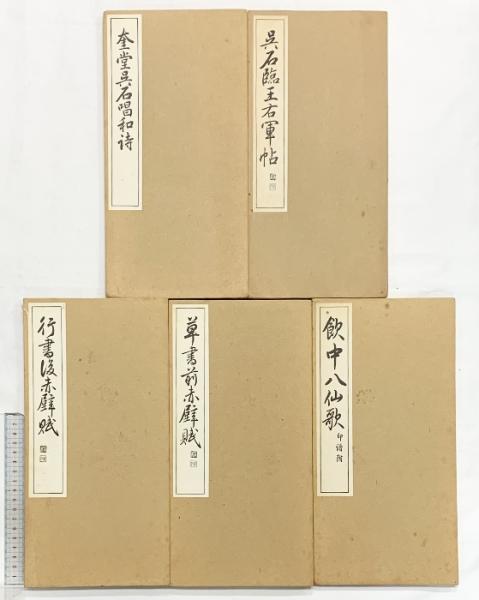 奎堂呉石唱和詩
呉石臨王右軍帖
行書後赤壁賦
草書前赤壁賦
飲中八仙歌
印譜附